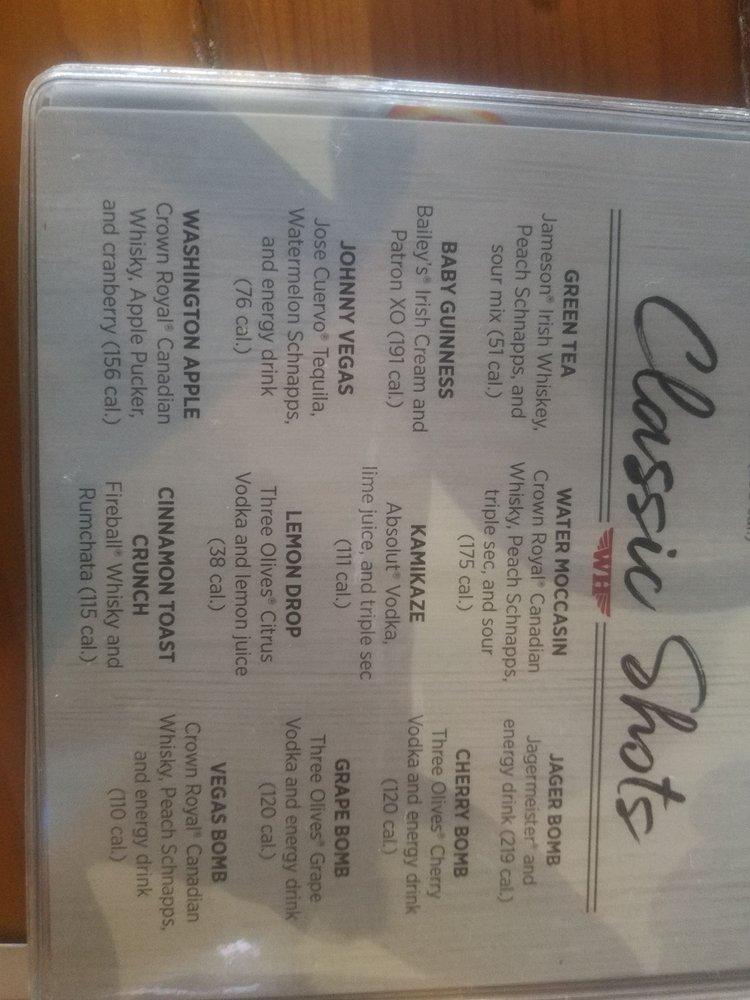 Classic Shots
WH
GREEN TEA
Jameson® Irish Whiskey,
Peach Schnapps, and
sour mix (51 cal.)
BABY GUINNESS
Bailey's® Irish Cream and
Patron XO (191 cal.)
JOHNNY VEGAS
Jose Cuervo® Tequila,
Watermelon Schnapps,
and energy drink
(76 cal.)
WASHINGTON APPLE
Crown Royal® Canadian
Whisky, Apple Pucker,
and cranberry (156 cal.)
WATER MOCCASIN
Crown Royal® Canadian
Whisky, Peach Schnapps,
triple sec, and sour
(175 cal.)
KAMIKAZE
Absolut® Vodka,
lime juice, and triple sec
(111 cal.)
LEMON DROP
Three Olives® Citrus
Vodka and lemon juice
(38 cal.)
CINNAMON TOAST
CRUNCH
Fireball® Whisky and
Rumchata (115 cal.)
JAGER BOMB
Jagermeister® and
energy drink (219 cal.)
CHERRY BOMB
Three Olives® Cherry
Vodka and energy drink
(120 cal.)
GRAPE BOMB
Three Olives® Grape
Vodka and energy drink
(120 cal.)
VEGAS BOMB
Crown Royal® Canadian
Whisky, Peach Schnapps,
and energy drink
(110 cal.)